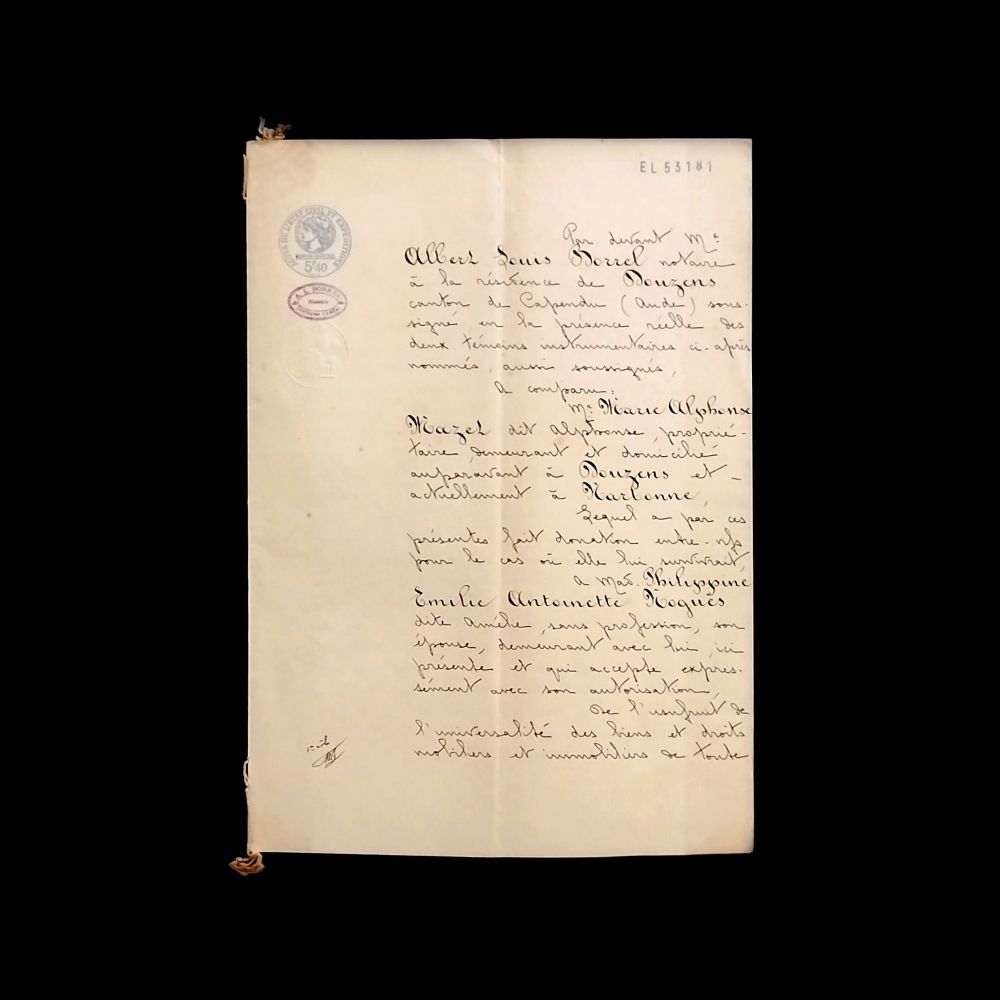 EL 53181
ACTES DE L'ETAT CIVIL ET EXPEDITIONS
5F40
Par devant Me
Albert Louis Borrel notaire
à la résidence de Douzens
canton de Capendu (Aude) sous-
signé, en la présence réelle des
deux témoins instrumentaires ci-après
nommés, aussi soussignés,
A comparu:
Mr Marie Alphonse
Mazet dit Alphonse, proprié-
taire, demeurant et domicilié
auparavant à Douzens et -
actuellement à Narbonne,
Lequel a par ces
présentes fait donation entre-vifs
pour le cas où elle lui survivrait,
A Mad. Philippine
Emilie Antoinette Noguès
dite Amélie, sans profession, son
épouse, demeurant avec lui, ici
présente et qui accepte expres-
sément avec son autorisation,
De l'usufruit de
l'universalité des biens et droits
mobiliers et immobiliers de toute